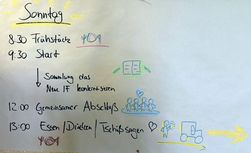 Sonntag
8:30 Frühstück
9:30 Start
Sammlung des
Neu IF konkretisieren
12:00 Gemeinsamer Abschluß
13:00 Essen / Drücken / Tschüßsagen